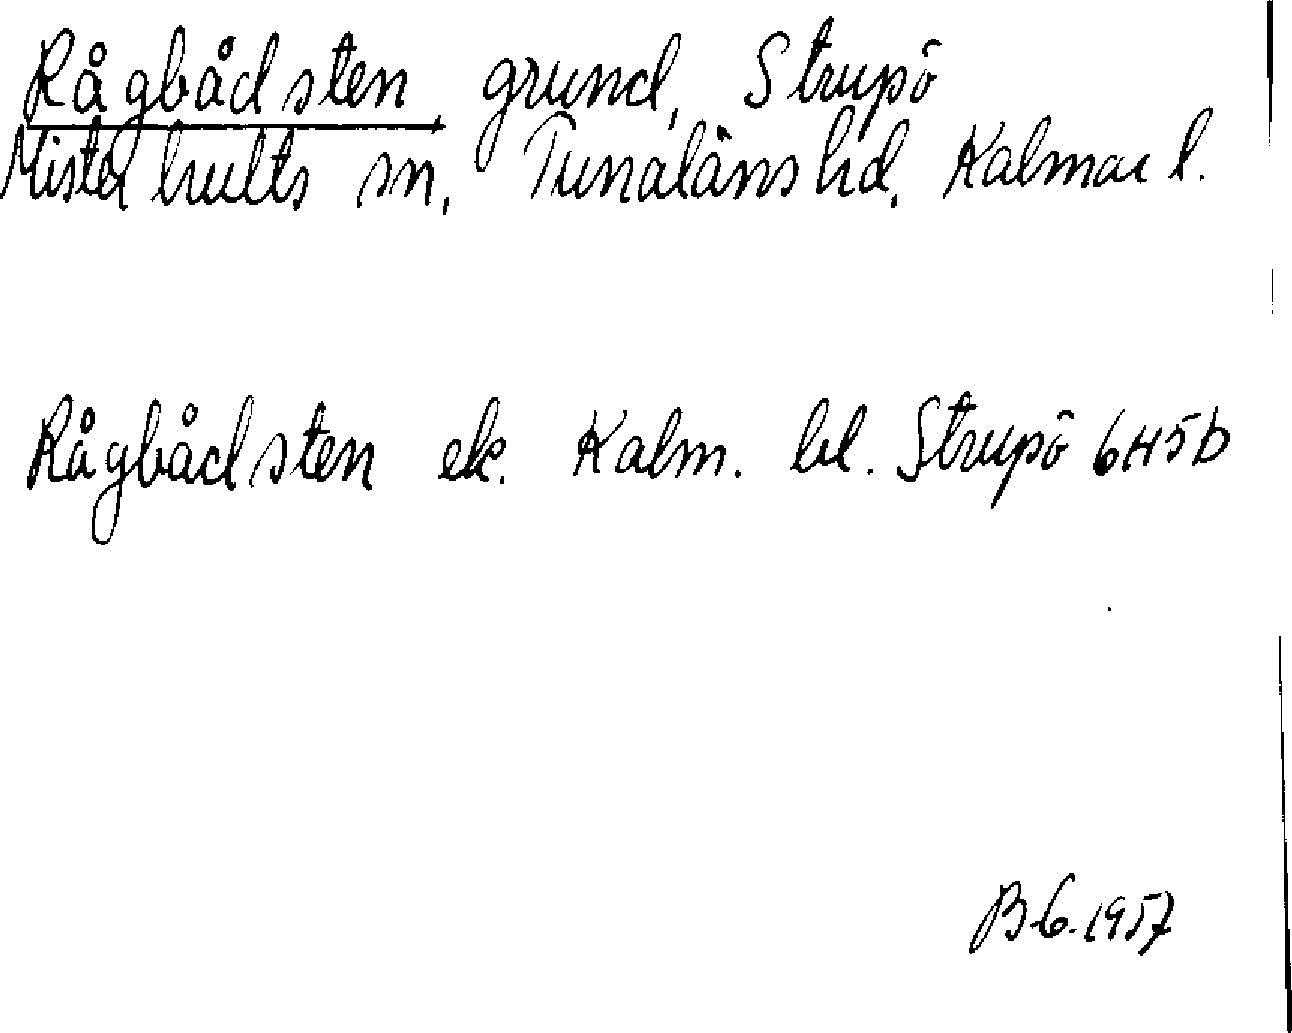 Rågbådsten, grund, Strupö
Misterhults sn, Tunaläns hd, Kalmar l.
Rågbådsten ek. Kalm. bl. Strupö 6H5b
B.G. 1957